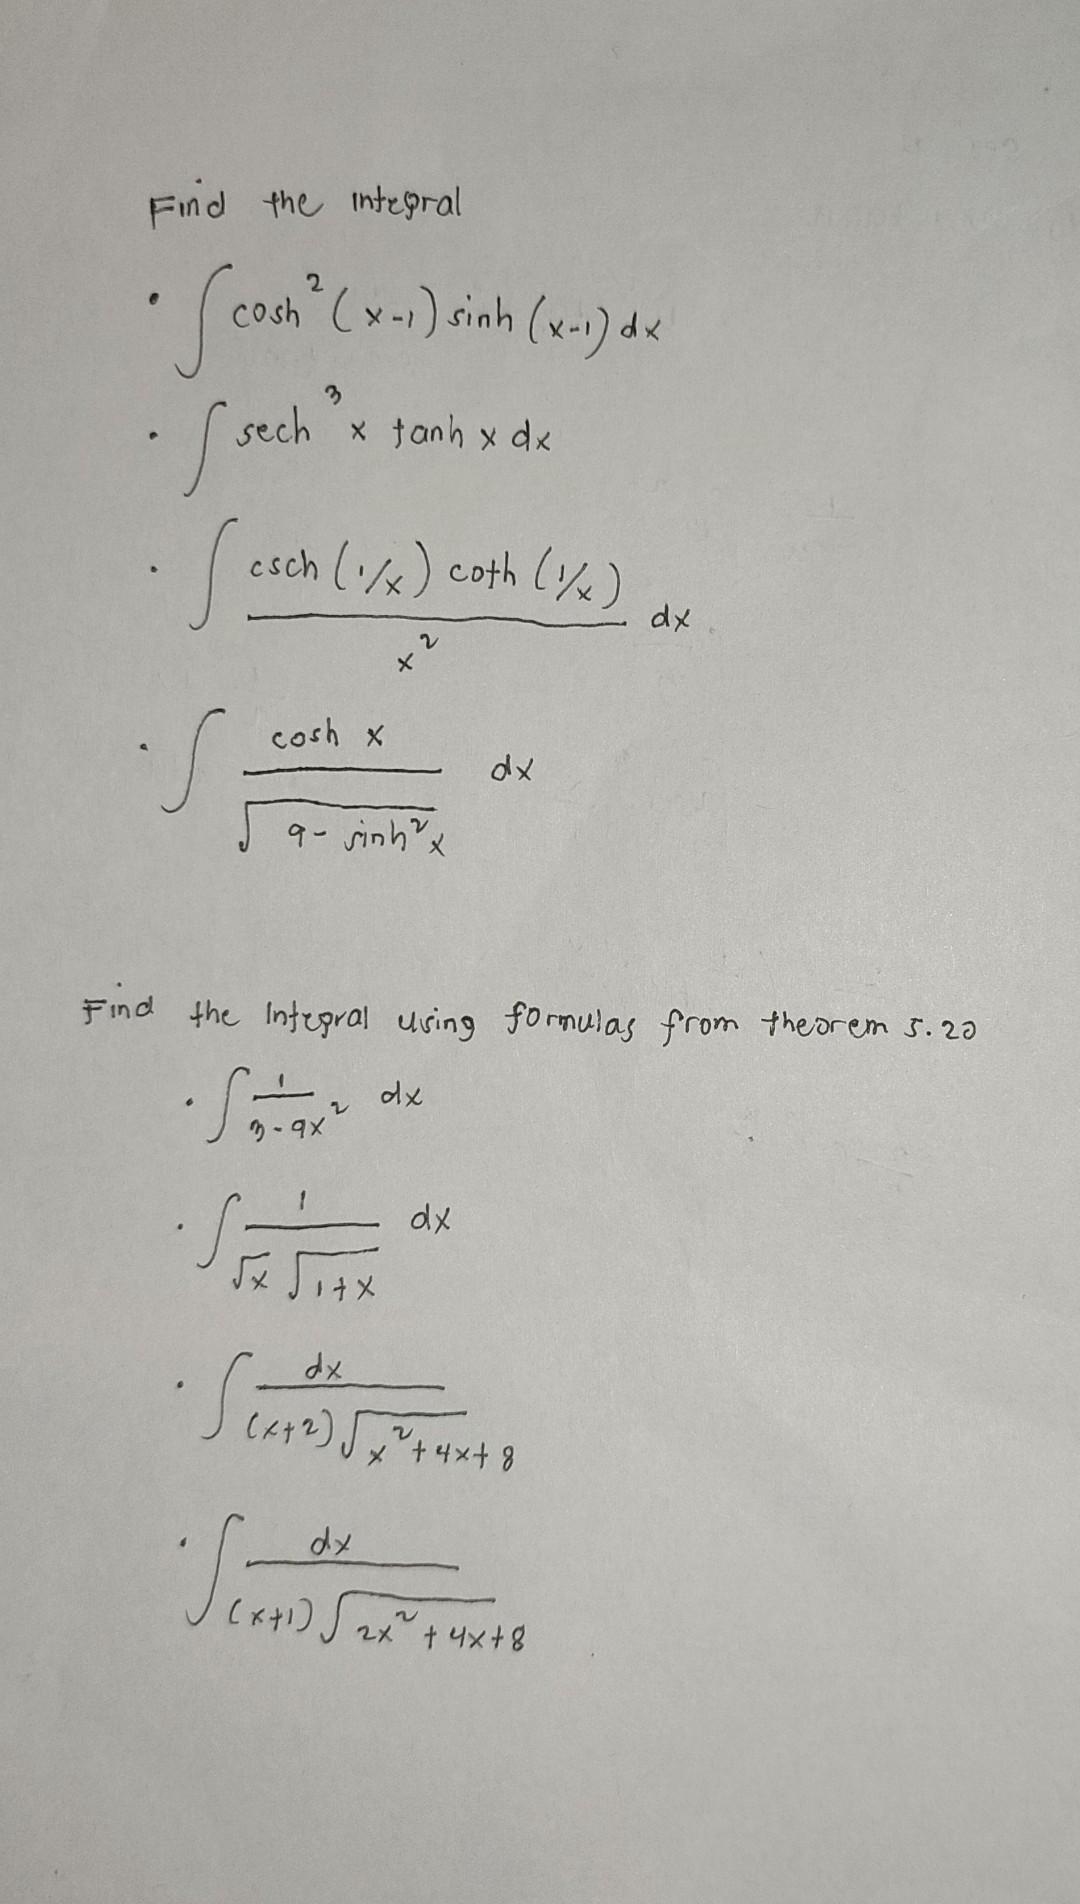 Find the integral
• ∫ cosh² (x-1) sinh (x-1) dx
• ∫ sech³ x tanh x dx
• ∫ csch (1/x) coth (1/x) / x² dx
• ∫ cosh x / √(9 - sinh² x) dx
Find the Integral using formulas from theorem 5.20
• ∫ 1 / (3 - 9x²) dx
• ∫ 1 / (√x √(1+x)) dx
• ∫ dx / ((x+2) √(x² + 4x + 8))
• ∫ dx / ((x+1) √(2x² + 4x + 8))